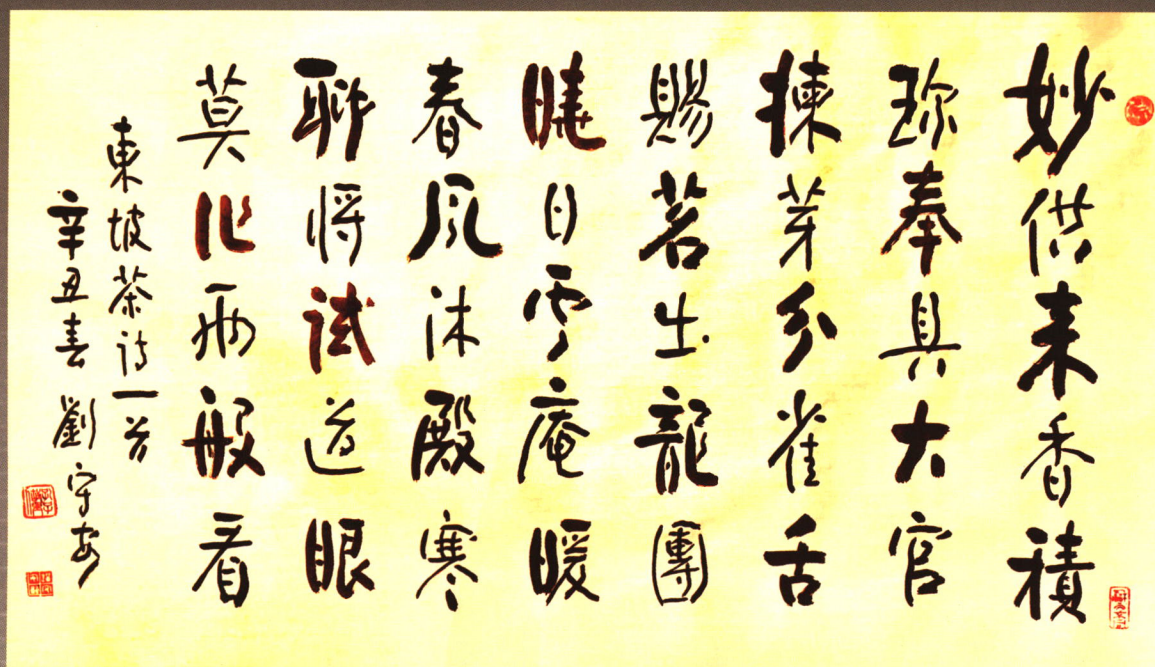 妙供来香積
珍奉具大官
揀芽分雀舌
賜茗出龍團
曉日雲庵暖
春風沐殿寒
聊將試道眼
莫作兩般看
東坡茶詩一首
辛丑春 劉守安